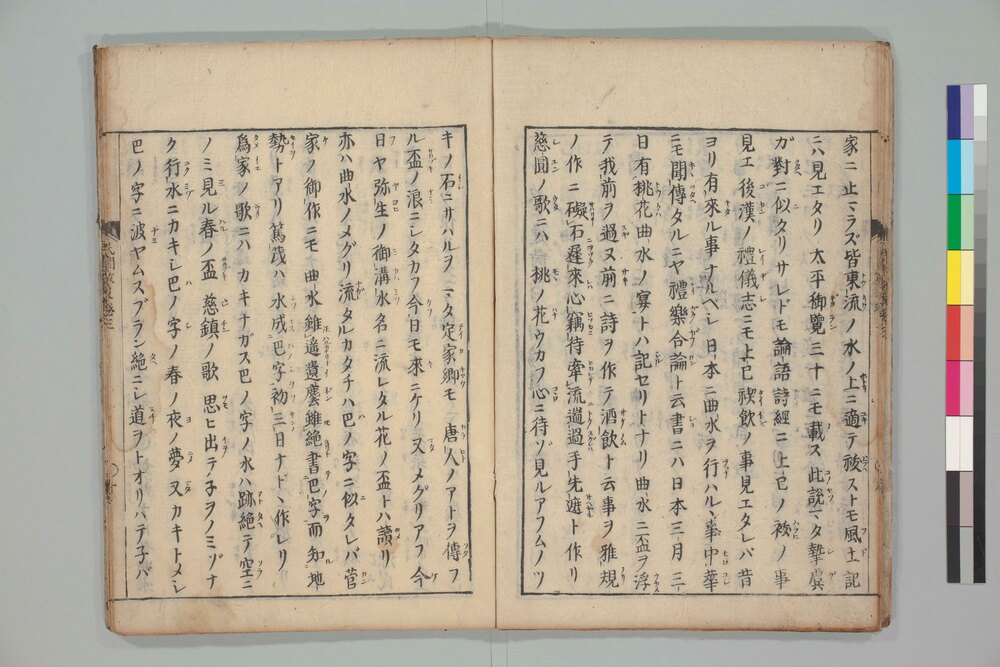 家ニ止マラズ皆東流ノ水ノ上ニ適テ祓ストモ風土記
ニハ見エタリ 太平御覧三十ニモ載ス 此説マタ摯虞
ガ對ニ似タリサレドモ論語詩經ニ上巳ノ祓ノ事
見エ 後漢ノ禮儀志ニモ上巳禊飲ノ事見エタレバ昔
ヨリ有來ル事ナルベシ日本ニ曲水ヲ行ハルヽ事中華
ニモ聞傳タルニヤ禮樂合論ト云書ニハ日本三月三
日有桃花曲水ノ宴トハ記セリトナリ曲水ニ盃ヲ浮
テ我前ヲ過又前ニ詩ヲ作テ酒飲ト云事ヲ雅規
ノ作ニ礙石遲來心竊待牽流遄過手先遮ト作リ
慈圓ノ歌ニハ 桃ノ花ウカフ心ニ待ゾ見ルアフムノツ
キノ石ニサハルヲ マタ定家卿モ 唐人ノアトヲ傳フ
ル盃ノ浪ニシタカフ今日モ來ニケリ又 メグリアフ今
日ヤ弥生ノ御溝水名ニ流レタル花ノ盃トハ讀リ
亦ハ曲水ノメグリ流タルカタチハ巴ノ字ニ似タレバ菅
家ノ御作ニモ 曲水雖遙遺塵雖絶書巴字而知地
勢トアリ篤茂ハ水成巴字初三日ナドヽ作レリ
爲家ノ歌ニハカキナガス巴ノ字ノ水ハ跡絶テ空ニ
ノミ見ル春ノ盃 慈鎮ノ歌 思ヒ出テ子ヲノミゾナ
ク行水ニカキシ巴ノ字ノ春ノ夜ノ夢 又カキトメシ
巴ノ字ニ波ヤムスブラン絶ニシ道ヲトオリハテ子バ